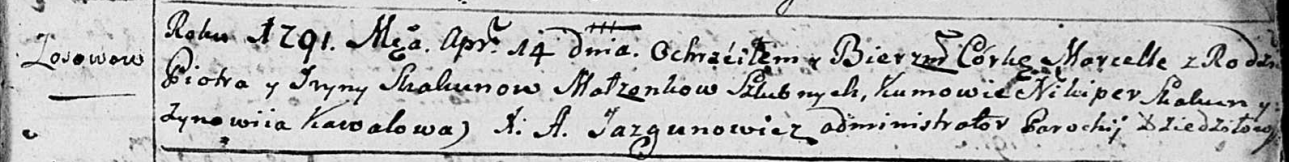 Roku 1791. Mća. Apr. 14 dnia. Ochrzciłem y Bierzm. Córkę Marcelle z Rodzi
Łosowow
Piotra y Iryny Skakunow Małzenkow Szlubnych, Kumowie Nikiper Skakun y
Zynowiia Kawalowa) X. A. Jazgunowicz administrator Parochij Dziedziłow